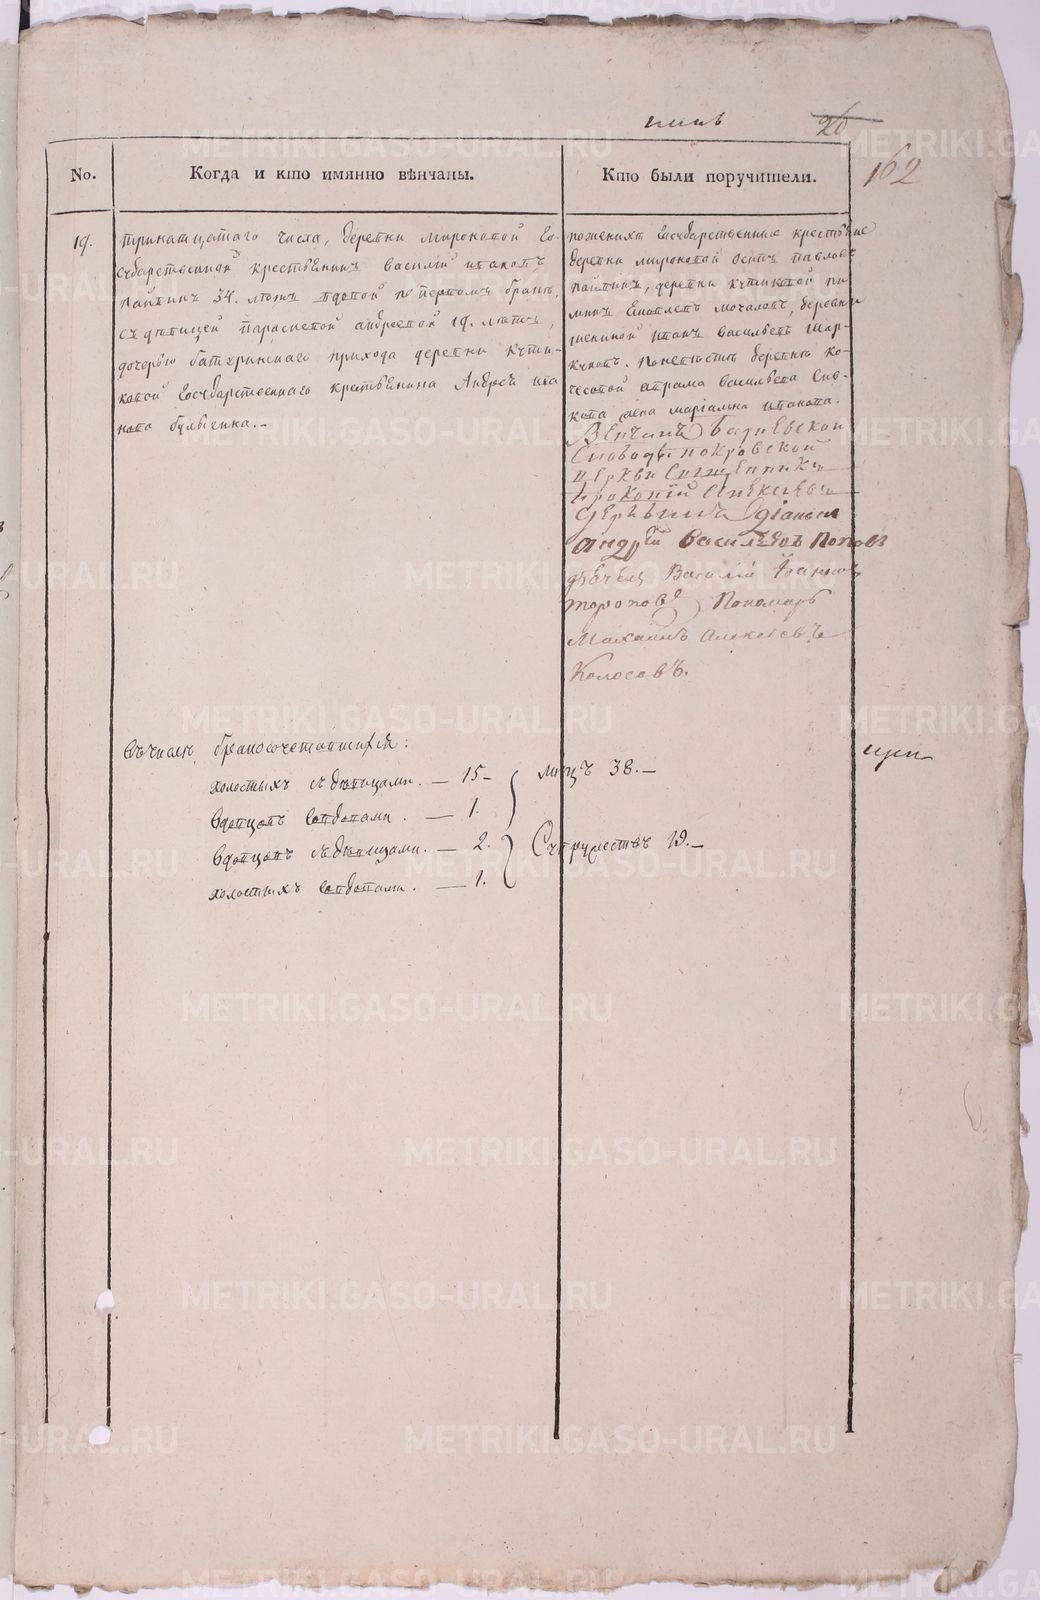 26
162
No.
Когда и кто имянно вѣнчаны.
Кто были поручители.
19.
тритцатаго числа, деревни мироновой Го-
сударственной крестьянинъ василій ивановъ
34. летъ вдовой первомъ бракѣ,
съ девицей параскевой андреевой 19. летъ,
дочерью батуринскаго прихода деревни кути-
ковой Государственнаго крестьянина Андрея ива
нова
поженихе Государственные крестьяне
деревни мироновой осипъ павловъ
деревни кутиковой
мочаловъ, деревни
иванъ васильевъ
деревни ко-
чесовой абрама васильева
жена ивановна.
Венчалъ Барневской
Слободы покровской
Церкви Священникъ
Прокопій Алексѣевъ
Діаконъ
Андрей Васильевъ Поповъ
дьячекъ Василій Ивановъ
Тороповъ Пономарь
Михаилъ Алексѣевъ
Колосовъ.
Въ числѣ бракосочетавшихся:
холостыхъ съ девицами. — 15 —
Вдовцовъ со вдовами. — 1.
Вдовцовъ съ девицами. — 2.
холостыхъ со вдовами. — 1.
лицъ 38. —
Супружествъ 19. —
METRIKI.GASO-URAL.RU